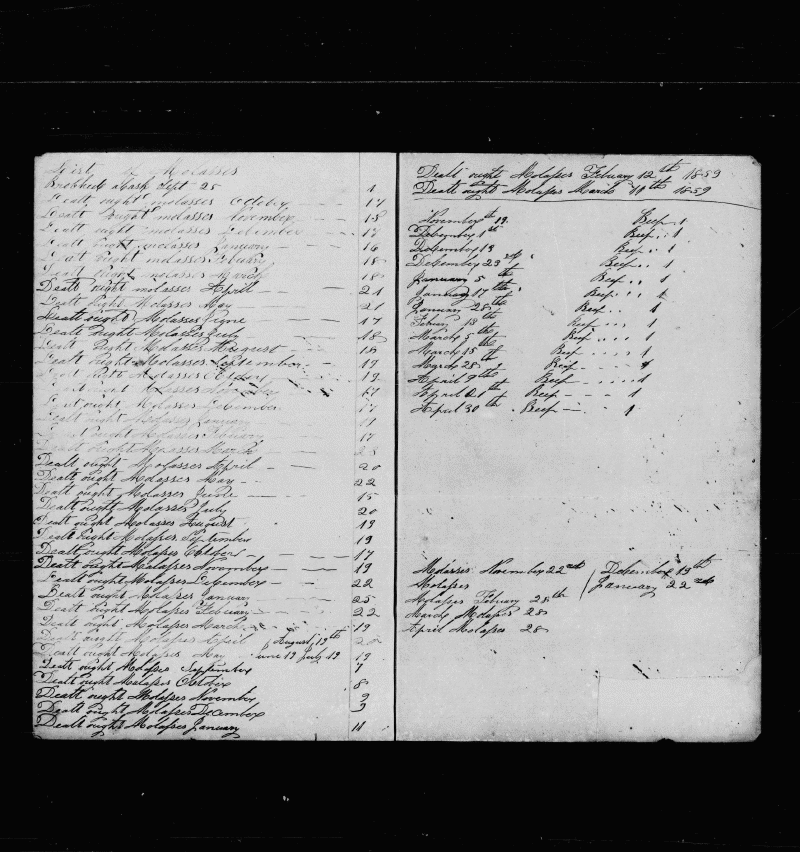 List of Molasses
Broched a Cask Sept 25 1
Dealt ought molasses October 17
Dealt ought molasses November 18
Dealt ought molasses December 17
Dealt ought molasses January 16
Dealt ought molasses Febuary 18
Dealt ought molasses March 18
Dealt ought molasses April 21
Dealt ought Molasses May 21
Dealt ought Molasses June 17
Dealt ought Molasses July 18
Dealt ought Molasses August 18
Dealt ought Molasses September 19
Dealt ought Molasses October 19
Dealt ought Molasses November 17
Dealt ought Molasses December 17
Dealt ought Molasses January
Dealt ought Molasses Febuary 17
Dealt ought Molasses March 28
Dealt ought Molasses April 20
Dealt ought Molasses May 22
Dealt ought Molasses June 15
Dealt ought Molasses July 20
Dealt ought Molasses August 19
Dealt ought Molasses September 19
Dealt ought Molasses October 17
Dealt ought Molasses November 19
Dealt ought Molasses December 22
Dealt ought Molasses January 25
Dealt ought Molasses Febuary 22
Dealt ought Molasses March 19
Dealt ought Molasses April August 19th 20
Dealt ought Molasses May June 19 July 19 19
Dealt ought Molasses September 7
Dealt ought Molasses October 8
Dealt ought Molasses November 9
Dealt ought Molasses December 9
Dealt ought Molasses January 11
Dealt ought Molasses Febuary 12th 1859
Dealt ought Molasses March 11th 1859
November 19th Beef 1
December 1th Beef 1
December 13 Beef 1
December 23rd Beef 1
January 5th Beef 1
January 17th Beef 1
January 28th Beef 1
Febuary 18th Beef 1
March 5th Beef 1
March 15th Beef 1
March 28 Beef 1
April 9th Beef 1
April 21th Beef 1
April 30th Beef 1
Molasses November 22nd December 19th
Molasses January 22nd
Molasses Febuary 28th
March Molasses 28
April Molasses 28